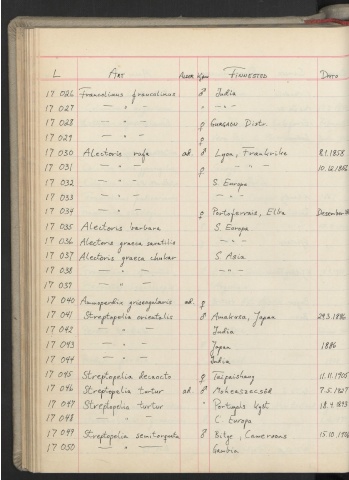 L ART ALDER KJØNN FINNESTED DATO
17 026 Francolinus francolinus ♂ India
17 027 — " — " — " —
17 028 — " — ♀ Gurgaon Distr.
17 029 — " — ♀
17 030 Alectoris rufa ad. ♂ Lyon, Frankrike 8.1.1858
17 031 — " — ♀ — " — 10.12.1862
17 032 — " — S. Europa
17 033 — " — — " —
17 034 — " — ♀ Portoferrais, Elba Desember
17 035 Alectoris barbara S. Europa
17 036 Alectoris graeca saxatilis — " —
17 037 Alectoris graeca chukar S. Asia
17 038 — " — — " —
17 039 — " —
17 040 Ammoperdix griseogularis ad. ♀
17 041 Streptopelia orientalis ♂ Japan 29.3.1886
17 042 — " — India
17 043 — " — Japan 1886
17 044 — " — India
17 045 Streptopelia decaocto ♀ Taipaishang 11.11.1905
17 046 Streptopelia turtur ad. ♂ 7.5.1927
17 047 Streptopelia turtur Portugals kyst 18.4.1893
17 048 — " — C Europa
17 049 Streptopelia semitorquata ♂ Bilge, Cameroons 15.10
17 050 — " — Gambia